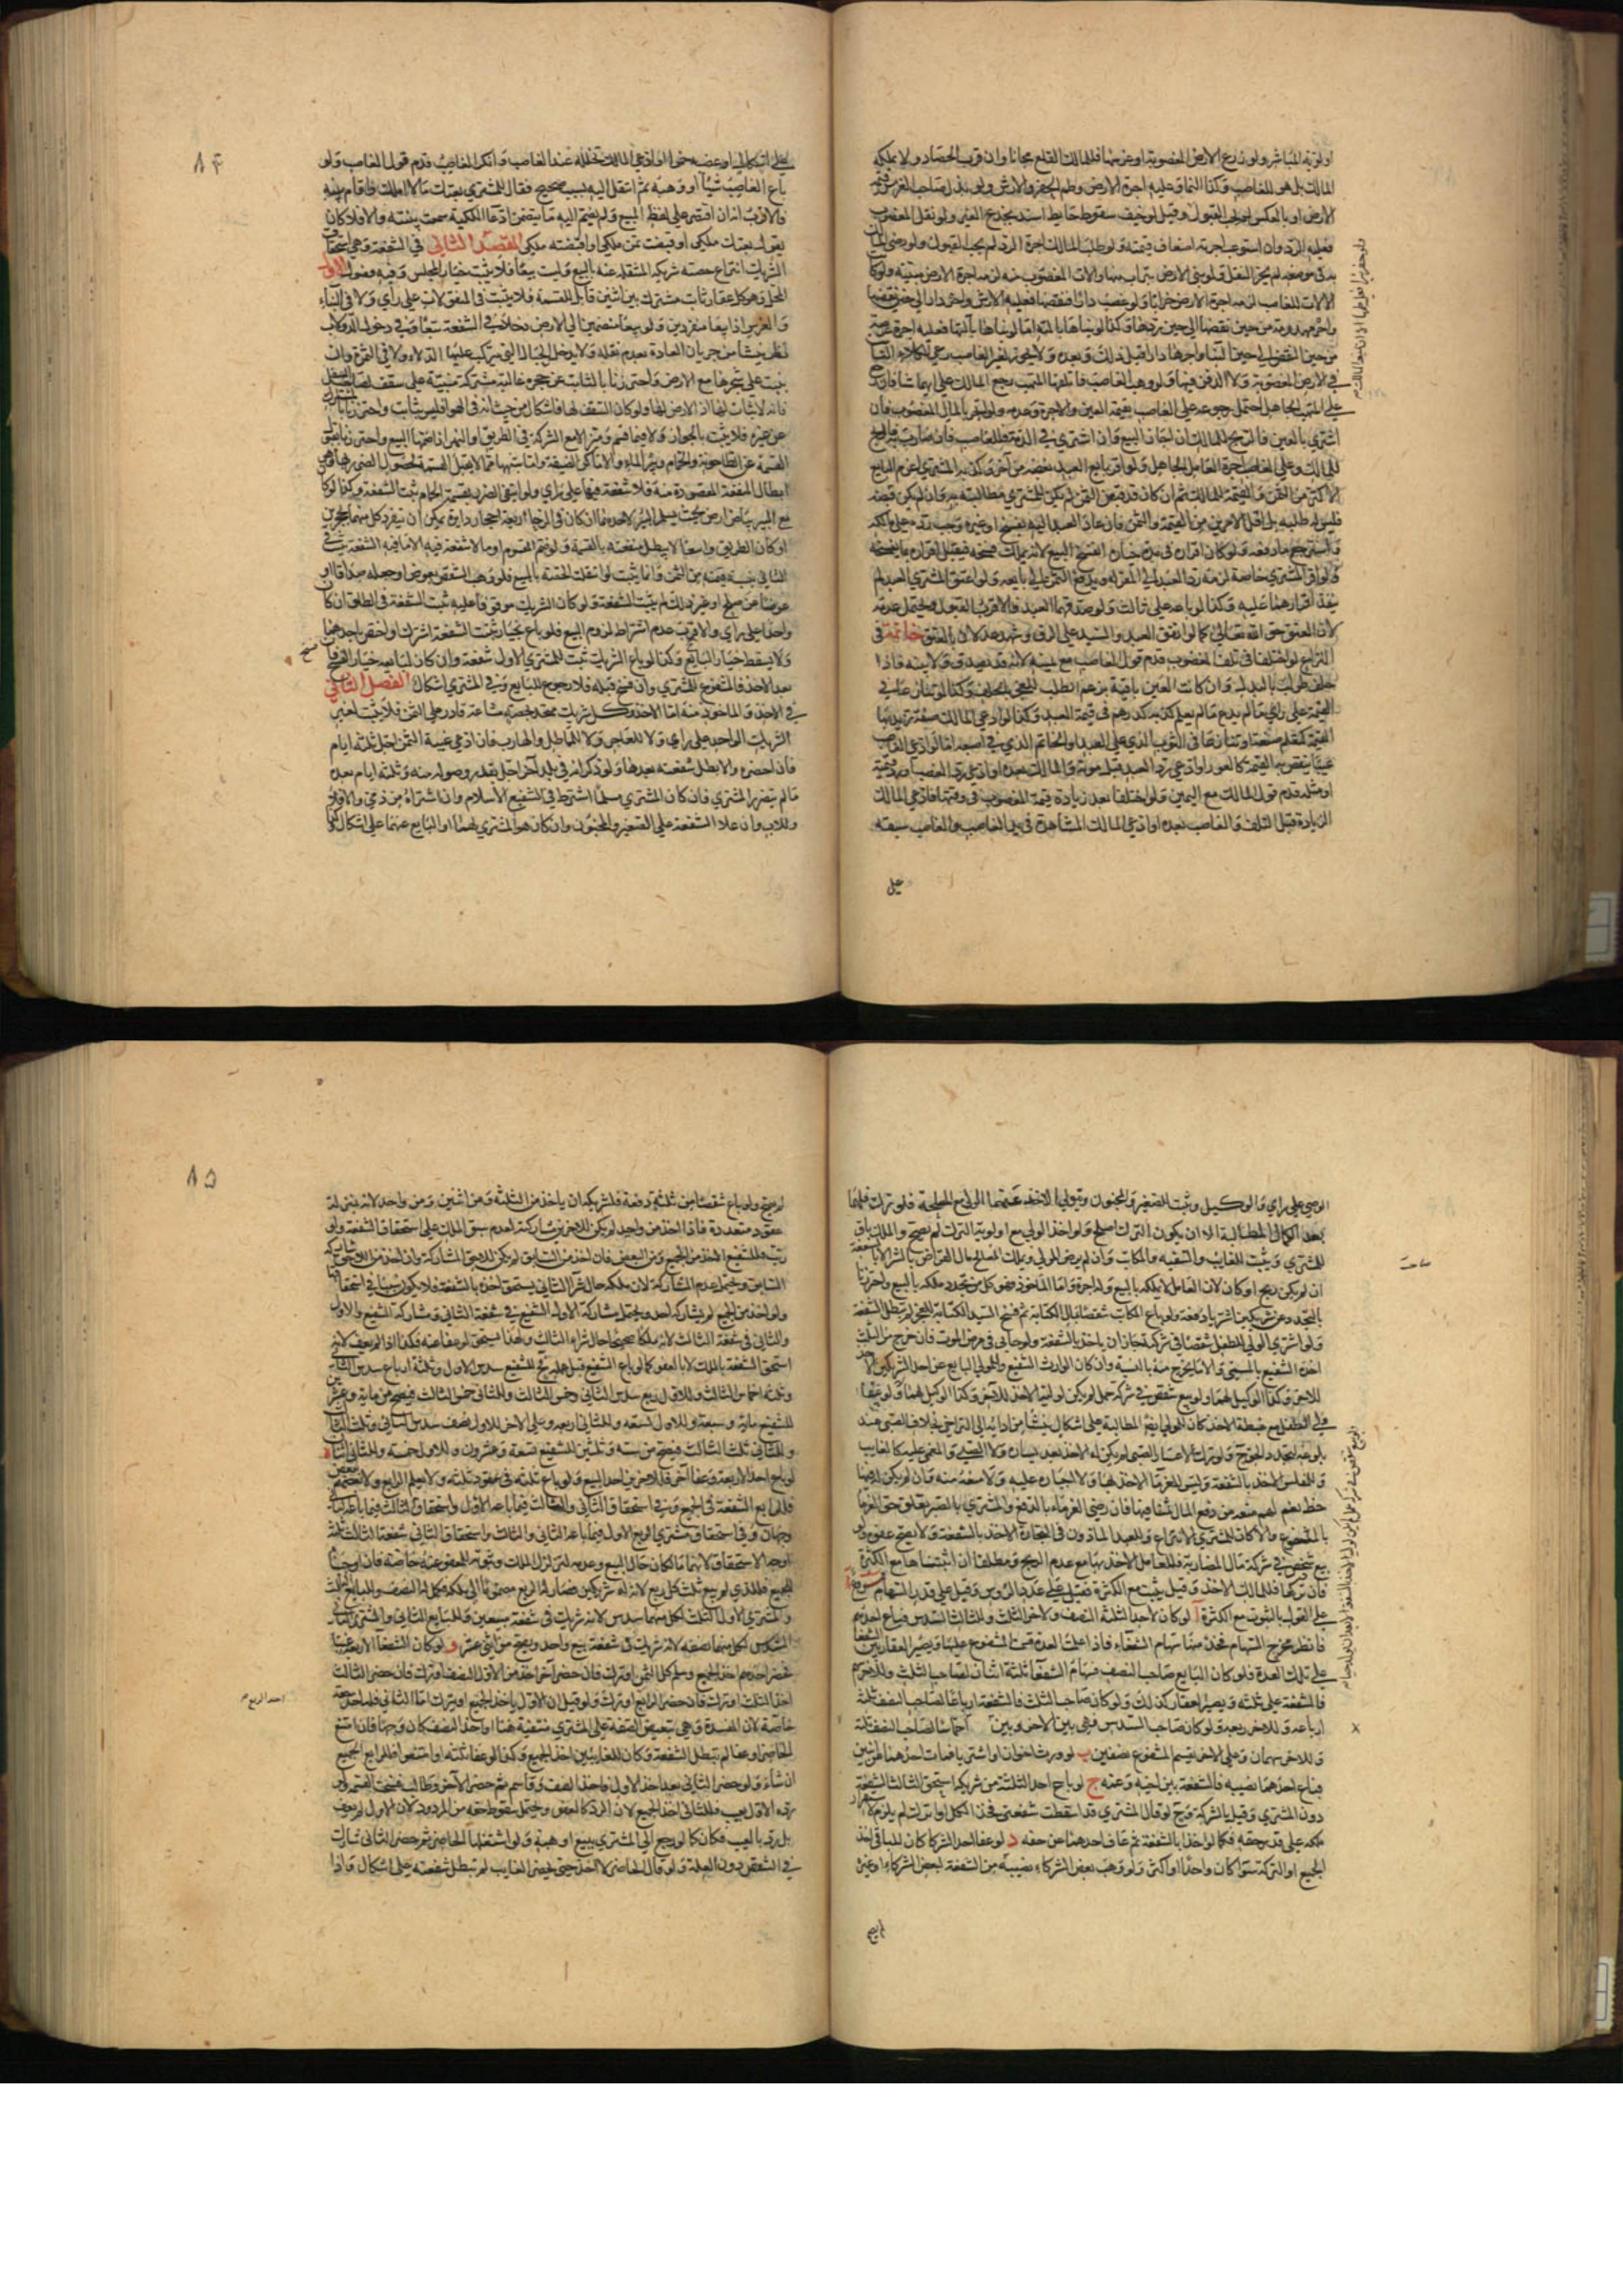 او لوّنه المباشر ولو زرع الارض المغصوبة او غرسها فللمالك القلع مجانا وان قرب الحصاد ولا يملكه
المالك بل هو للغاصب وكذا النماء وعليه اجرة الارض وطم الحفر والارش ولو بذل صاحب الغرس قيمة
الارض او بالعكس لم يجب القبول وقيل لو خيف سقوط حايط اسند بجذع الغير ولو نقل المغصوب
فعليه الرد وان استوعب اجرته اضعاف قيمته ولو طلب المالك اجرة الرد لم يجب القبول ولو رضى المالك
به في موضعه لم يجز النقل ولو بنى الارض بتراب منها والات المغصوب منه لزمه اجرة الارض مبنية ولو كا
الالات للغاصب لزمه اجرة الارض خرابا ولو غصب دارا فنقضها فعليه الارش واجرة دار الى حين نقضها
واجرة مهدومة من حين نقضها الى حين ردها وكذا لو بناها بالته اما لو بناها بآلتها فعليه اجرة عرصة
من حين النقض الى حين البناء واجرتها دارا قبل ذلك وبعده ولا يجوز لغير الغاصب رعى الكلاء النابت
في الارض المغصوبة ولا الدفن فيها ولو وهب الغاصب فاتلفها المتهب رجع المالك على ايهما شاء فان رجع
على المتهب الجاهل احتمل رجوعه على الغاصب بقيمة العين والاجرة وعدمه ولو اتجر بالمال المغصوب فان
اشترى بالعين فالربح للمالك ان اجاز البيع وان اشترى في الذمة فللغاصب فان ضارب به فالربح
للمالك وعلى الغاصب اجرة العامل الجاهل ولو اقر بايع العبد بغصبه من آخر وكذبه المشترى اغرم البايع
الاكثر من الثمن والقيمة للمالك ثم ان كان قد قبض الثمن لم يكن للمشترى مطالبته به وان لم يكن قبضه
فليس له طلبه بل اقل الامرين من القيمة والثمن فان عاد العبد اليه بفسخ او غيره وجب رده على مالكه
واسترجع ما دفعه ولو كان اقراره في مدة خياره انفسخ البيع لانه يملك فسخه فيقبل اقراره بما يفسخه
ولو اقر المشترى خاصة لزمه رد العبد الى المقر له ويدفع الثمن الى بايعه ولو اعتق المشترى العبد لم
ينفذ اقرارهما عليه وكذا لو باعه على ثالث ولو صدقهما العبد فالاقرب القبول ويحتمل عدمه
لان العتق حق الله تعالى كما لو اتفق العبد والسيد على الرق وشهد عدلان بالعتق خاتمة في
النزاع لو اختلفا في تلف المغصوب قدم قول الغاصب مع يمينه لانه قد يصدق ولا بينه فاذا
حلف طولب بالبدل وان كانت العين باقية بزعم الطالب للعجز بالحلف وكذا لو تنازعا في
القيمة على راى ما لم يدع ما لم يعلم كذبه كدرهم في قيمة العبد وكذا لو ادعى المالك صفة تزيد بها
القيمة كتعلم صنعة او تنازعا في الثوب الذى على العبد او الخاتم الذى في اصبعه اما لو ادعى الغاصب
عيبا ينقص به القيمة كالعور او ادعى رد العبد قبل موته والمالك بعده او ادعى رد الغصب او رد قيمته
او مثله قدم قول المالك مع اليمين ولو اختلفا بعد زيادة قيمة المغصوب في وقتها فادعى المالك
الزيادة قبل التلف والغاصب بعده او ادعى المالك المشاهدة في يد الغاصب والغاصب سبقه
على
٨٤
على اشكال او غصبه خمرا وادعى المالك تخلله عند الغاصب وانكر الغاصب قدم قول الغاصب ولو
باع الغاصب شيئا او وهبه ثم انتقل اليه بسبب صحيح فقال للمشترى بعتك ما لا املك واقام بينة
فالاقرب انه ان اقتصر على لفظ البيع ولم يضم اليه ما يتضمن ادعاء الملكية سمعت بينته والا فلا كان
يقول بعتك ملكى او قبضت ثمن ملكى او اقبضته ملكى المقصد الثانى في الشفعة وهى استحقاق
الشريك انتزاع حصة شريكه المنتقلة عنه بالبيع وليست بيعا فلا يثبت خيار المجلس وفيه فصول الاول
المحل وهو كل عقار ثابت مشترك بين اثنين قابل للقسمة فلا يثبت في المنقولات على راى ولا في البناء
والغرس اذا بيعا منفردين ولو بيعا منضمين الى الارض دخلا في الشفعة تبعا وفي دخول الدولاب
نظر ينشأ من جريان العادة بعدم نقله ولا يدخل الحبال التى تركب عليها الدلاء ولا في الثمرة وان
بيعت على شجرها مع الارض واحترزنا بالثابت عن حجرة عالية مشتركة مبنية على سقف لصاحب السفل
فانه لا ثبات لها اذ لا ارض لها ولو كان السقف لها فاشكال من حيث انه في الهواء فليس بثابت واحترزنا بالمشترك
عن غيره فلا يثبت بالجوار ولا فيما قسم وميز الا مع الشركة في الطريق او النهر اذا ضمهما البيع واحترزنا بقبول
القسمة عن الطاحونة والحمام وبئر الماء والاماكن الضيقة وما شابهها مما لا يقبل القسمة لحصول الضرر بها وهو
ابطال المنفعة المقصودة منه فلا شفعة فيها على راى ولو انتفى الضرر بقسمة الحمام ثبت الشفعة وكذا لو كا
مع البئر بياض ارض بحيث يسلم البئر لاحدهما او كان في الرحا اربعة احجار دايرة يمكن ان ينفرد كل منهما بحجرين
او كان الطريق واسعا لا يبطل منفعته بالقسمة ولو ضم المقسوم او ما لا شفعة فيه الى ما فيه الشفعة ثبت في
الثانى بنسبة قيمته من الثمن وانما يثبت لو انتقلت الحصة بالبيع فلو وهب الشقص بعوض او جعله صداقا او
عوضا عن صلح او غير ذلك لم يثبت الشفعة ولو كان الشريك موقوفا عليه ثبت الشفعة في الطلق ان كا
واحدا على راى والاقرب عدم اشتراط لزوم البيع فلو باع بخيار ثبت الشفعة اشترك او اختص باحدهما
ولا يسقط خيار البائع وكذا لو باع الشريك ثبت للمشترى الاول شفعة وان كان لبايعه خيار الفسخ فان فسخ
بعد الاخذ فالمشفوع للمشترى وان فسخ قبله فلا رجوع للبايع وفي المشترى اشكال الفصل الثانى
في الاخذ والماخوذ منه اما الاخذ فكل شريك متحد بحصة مشاعة قادر على الثمن فلا يثبت لغير
الشريك الواحد على راى ولا للعاجز ولا المماطل والهارب فان ادعى غيبة الثمن اجل ثلثة ايام
فان احضره والا بطل شفعته بعدها ولو ذكر انه في بلد آخر اجل بقدر وصوله منه وثلثة ايام بعده
ما لم يتضرر المشترى فان كان المشترى مسلما اشترط في الشفيع الاسلام وان اشتراه من ذمى والا فلا
وللاب وان علا الشفعة على الصغير والمجنون وان كان هو المشترى لهما او البايع عنهما على اشكال وكذا
٨٥
الوصى على راى والوكيل ويثبت للصغير والمجنون ويتولى الاخذ عنهما الولى مع المصلحة فلو ترك فلهما
بعد الكمال المطالبة الا ان يكون الترك اصلح ولو اخذ الولى مع اولوية الترك لم يصح والملك باق
للمشترى ويثبت للغايب والسفيه والمكاتب وان لم يرض المولى ويملك صاحب مال القراض بالشراء لا بالشفعة
ان لم يكن ربح او كان لان العامل لا يملكه بالبيع وله الاجرة واما الماخوذ منه فهو كل من تجدد ملكه بالبيع واحترزنا
بالتجدد عن شريكين اشتريا دفعة ولو باع المكاتب شقصا بمال الكتابة ثم فسخ السيد الكتابة للعجز لم تبطل الشفعة
ولو اشترى الولى للطفل شقصا في شركته جاز ان ياخذ بالشفعة ولو حابى في مرض الموت فان خرج من الثلث
اخذه الشفيع بالمسمى والا ما يخرج منه بالنسبة وان كان الوارث الشفيع والمولى البايع عن احد الشريكين الاخذ
للاخر وكذا الوكيل لهما ولو بيع شقص في شركة حمل لم يكن لوليه الاخذ بالشفعة وكذا الوكيل لهما ولو عفا
ولى الطفل مع غبطة الاخذ كان للولى ايضا المطالبة على اشكال ينشأ من ادائه الى التراخى بخلاف الصبى عند
بلوغه لتجدد الحق ولو ترك لاعسار الصبى لم يكن له الاخذ بعد يساره ولا للصبى والمغمى عليه كالغايب
وللمفلس الاخذ بالشفعة وليس للغرماء الاخذ بها ولا اجباره عليه ولا منعه منه وان لم يكن له فيها
حظ نعم لهم منعه من دفع المال ثمنا فيها فان رضى الغرماء بالدفع او المشترى بالصبر تعلق حق الغرماء
بالمشفوع والا كان للمشترى الانتزاع وللعبد الماذون في التجارة الاخذ بالشفعة ولا يصح عفوه ولو
بيع شقص في شركة مال المضاربة فللعامل الاخذ بها مع عدم الربح ومطلقا ان اثبتناها مع الكثرة
فان تركها فللمالك الاخذ وقيل يثبت مع الكثرة فقيل على عدد الرؤس وقيل على قدر السهام
على القول بالثبوت مع الكثرة ا لو كان لاحد الثلثة النصف وللاخر الثلث وللثالث السدس فباع احدهم
فانظر مخرج السهام فخذ منها سهام الشفعاء فاذا علمت العدة قسمت المشفوع عليها ويصير العقار بين الشفعاء
على تلك العدة فلو كان البايع صاحب النصف فسهام الشفعاء ثلثة اثنان لصاحب الثلث وللاخر سهم
فالشفعة على ثلثة ويصير العقار كذلك ولو كان صاحب الثلث فالشفعة ارباعا لصاحب النصف ثلثة
ارباعه وللاخر ربعه ولو كان صاحب السدس فهى بين الاخرين اخماسا لصاحب النصف ثلثة
وللاخر سهمان وعلى الاخر يقسم المشفوع نصفين ب لو ورث اخوان او اشتريا فمات احدهما عن ابنين
فباع احدهما نصيبه فالشفعة بين اخيه وعمه ج لو باع احد الثلثة من شريكه استحق الثالث الشفعة
دون المشترى وقيل بالشركة وح لو قال المشترى قد اسقطت شفعتى فخذ الكل او اترك لم يلزم لاستقرار
ملكه على قدر حقه فكما لو اخذا بالشفعة ثم عفا احدهما عن حقه د لو عفا احد الشركاء كان للباقى اخذ
الجميع او الترك سواء كان واحدا او اكثر ولو وهب بعض الشركاء نصيبه من الشفعة لبعض الشركاء او غيره
لم يصح
لم يصح ولو باع شقصا من ثلثة دفعة فلشريكه ان ياخذ من الثلثة ومن اثنين ومن واحد لانه بمنزلة
عقود متعددة فاذا اخذ من واحد لم يكن للاخرين مشاركته لعدم سبق الملك على استحقاق الشفعة ولو
رتب فللشفيع الاخذ من الجميع ومن البعض فان اخذ من السابق لم يكن للاحق المشاركة وان اخذ من اللاحق شاركه
السابق ويحتمل عدم المشاركة لان ملكه حال شراء الثانى يستحق اخذه بالشفعة فلا يكون سببا في استحقاقها
ولو اخذ من الجميع لم يشاركه احد ويحتمل مشاركة الاول الشفيع في شفعة الثانى ومشاركة الشفيع والاول
والثانى في شفعة الثالث لانه كان ملكا صحيحا حال شراء الثالث ولهذا يستحق لو عفا عنه فكذا اذا لم يعف لانه
استحق الشفعة بالملك لا بالعفو كما لو باع الشفيع قبل علمه فح للشفيع سدس الاول وثلثة ارباع سدس الثانى
وثلثة اخماس الثالث وللاول ربع سدس الثانى وخمس الثالث وللثانى خمس الثالث فيصح من مائة وعشرين
للشفيع مائة وسبعة وللاول تسعة وللثانى اربعة وعلى الاخر للاول نصف سدس الثانى وثلث الثالث
وللثانى ثلث الثالث فيصح من ستة وثلثين للشفيع تسعة وعشرون وللاول خمسة وللثانى اثنان ه
لو باع احد الاربعة وعفا آخر فللاخرين اخذ المبيع ولو باع ثلثة في عقود ثلثة ولا يعلم الرابع ولا بعضهم
فللرابع الشفعة في الجميع وفي استحقاق الثانى والثالث فيما باعه الاول واستحقاق الثالث فيما باعه الثانى
وجهان وفي استحقاق مشترى الربع الاول فيما باعه الثانى والثالث واستحقاق الثانى شفعة الثالث ثلثة
اوجه الاستحقاق لانهما مالكان حال البيع وعدمه لتزلزل الملك وثبوته للمعفو عنه خاصة فان اوجبنا
للجميع فللذى لم يبع ثلث كل ربع لان له شريكين فصار له الربع مضموما الى ملكه فكمل له النصف وللبايع الثالث
والمشترى الاول الثلث لكل منهما سدس لانه شريك في شفعة مبيعين وللبايع الثانى والمشترى الثانى
السدس لكل منهما نصفه لانه شريك في شفعة بيع واحد ويصح من اثنى عشر و لو كان الشفعاء الاربعة غيبا
فحضر احدهم اخذ الجميع وسلم كل الثمن او ترك فان حضر آخر اخذ من الاول النصف او ترك فان حضر الثالث
اخذ الثلث او ترك فان حضر الرابع اخذ الربع او ترك ولو قيل ان الاول ياخذ الجميع او يترك اما الثانى فله اخذ حقه
خاصة لان المفسدة وهى تبعيض الصفقة على المشترى منتفية هنا او اخذ النصف كان وجها فان امتنع
الحاضر او عفا لم تبطل الشفعة وكان للغايبين اخذ الجميع وكذا لو عفا ثلثة او امتنعوا فللرابع الجميع
ان شاء ولو حضر الثانى بعد اخذ الاول فاخذ النصف وقاسم ثم حضر الآخر وطالب فسخت القسمة ولو
رده الاول بعيب فللثانى اخذ الجميع لان الرد كالعفو ويحتمل سقوط حقه من المردود لان الاول لم يعف
بل رد بالعيب فكان كما لو رجع الى المشترى ببيع او هبة ولو استغلها الحاضر ثم حضر الثانى شارك
في الشقص دون الغلة ولو قال الحاضر لا آخذ حتى يحضر الغايب لم تبطل شفعته على اشكال واذا